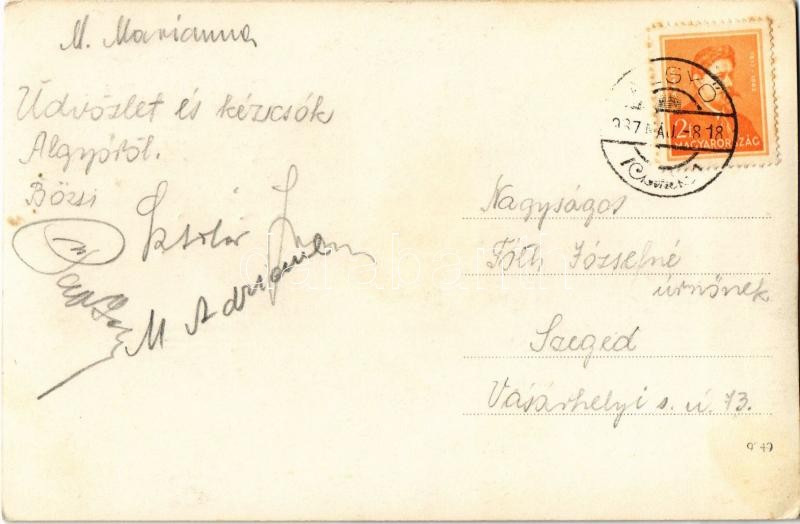 M. Marianna
Üdvözlet és kézcsók
Algyőről.
Bözsi
M Adrienne
ALGYŐ
937 MÁJ. -8. 18
2
MAGYARORSZÁG
Nagyságos
Tóth Józsefné
úrnőnek
Szeged
Vásárhelyi s. ú. 73.
darabanth